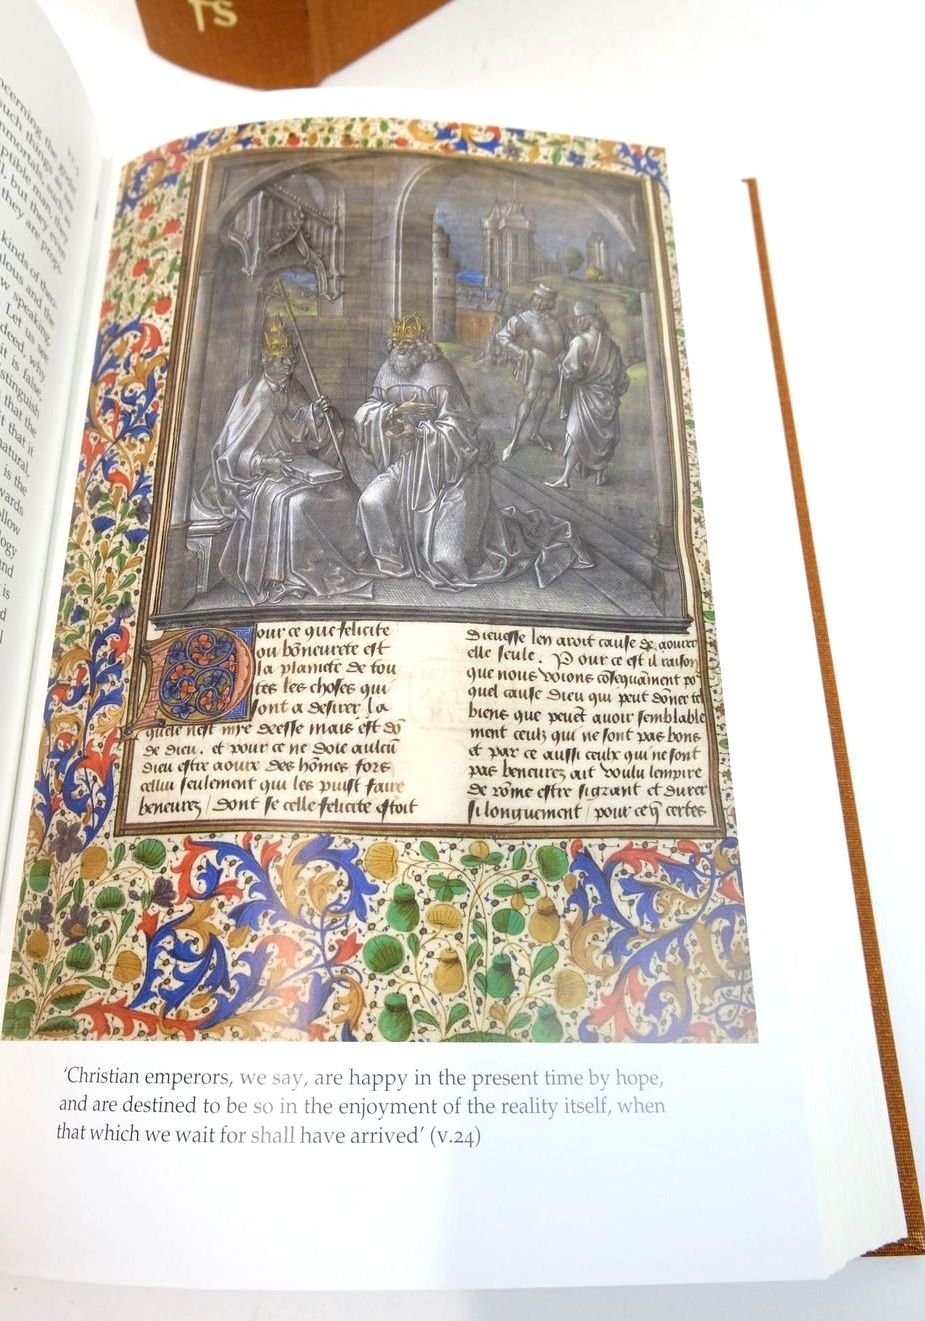 ncerning the
such things as
mmortals, such
public man, the
, but they
they are prop
kinds of them
and the
w speaking.
Let us see
deed, why
it is false,
stinguish
that the
it that it
natural,
is the
wards
ollow
ology
and
is
our ce que felicite
ou bõneurete est
la planete de tou
tes les choses qui
sont a desirer la
quele nest mye deesse mais est dõ
de dieu . et pour ce ne doie aulcũ
dieu estre aoure des hõmes fors
cellui seulement qui les puist faire
beneurez / dont se celle felicite estoit
dieuesse len aroit cause de aourer
elle seule . Pour ce est il raison
que nous voions cõsequament po
quel cause dieu qui peut dõner telz
biens que peuẽt avoir semblable
ment ceulz qui ne sont pas bons
et par ce aussi ceulx qui ne sont
pas beneurez ait voulu lempire
de rõme estre si grant et durer
si longuement / pour ce q̃ certes
'Christian emperors, we say, are happy in the present time by hope,
and are destined to be so in the enjoyment of the reality itself, when
that which we wait for shall have arrived' (v.24)